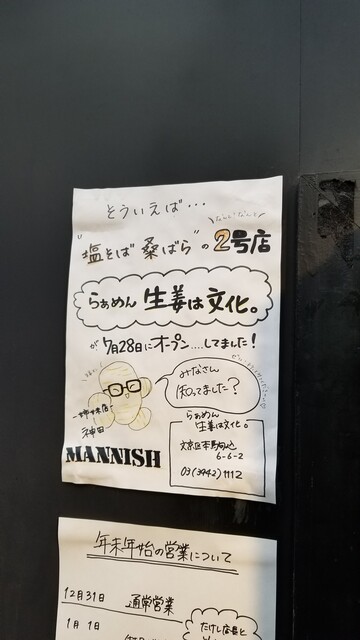 そういえば・・・
なんとなんと
"塩そば 桑ばら"の2号店
らぁめん 生姜は文化。
が7月28日にオープン....してました!
みなさん
知ってました?
姉妹店
神田
MANNISH
らぁめん
生姜は文化。
文京区本駒込
6-6-2
03(3942)1112
年末年始の営業について
12月31日 通常営業
1月1日
たけし店長と